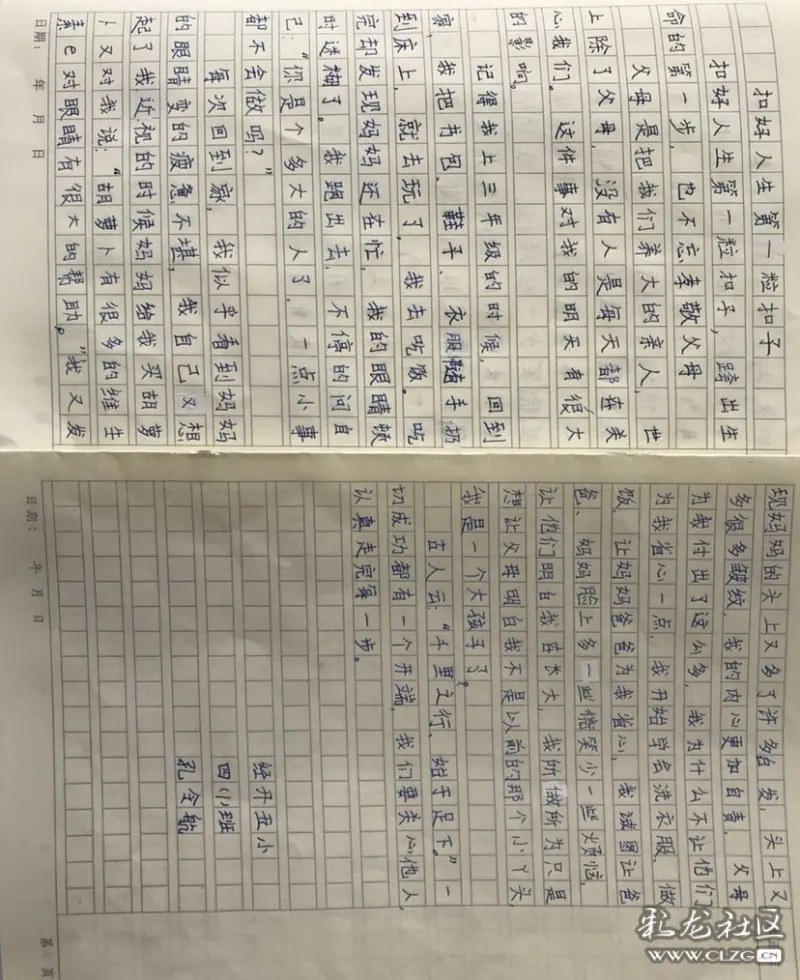 扣好人生第一粒扣子
扣好人生第一粒扣子，跨出生
命的第一步，也不忘孝敬父母
父母是把我们养大的亲人，世
上除了父母，没有人是每天都在关
心我们。这件事对我的明天有很大
的影响。
记得我上三年级的时候，回到
家，我把书包、鞋子、衣服随手扔
到床上，就去玩了。我去吃饭。吃
完却发现妈妈还在忙，我的眼睛顿
时迷糊了。我跑出去，不停的问自
己：“你是个多大的人了，一点小事
都不会做吗？”
每次回到家，我似乎看到妈妈
的眼睛变的疲惫不堪，我自己又想
起了我近视的时候妈妈给我买胡萝
卜又对我说：“胡萝卜有很多的维生
素e对眼睛有很大的帮助。”我又发
日期： 年 月 日
现妈妈的头上又多了许多白发，头上又
多很多皱纹，我的内心更加自责，父母
为我付出了这么多，我为什么不让他们
为我省心一点，我开始学会洗衣服、做
饭，让妈妈爸爸为我省心，我试图让爸
爸、妈妈脸上多一些微笑少一些烦恼，
让他们明白我在长大，我所做所为只是
想让父母明白我不是以前的那个小丫头，
我是一个大孩子了。
古人云：“千里之行，始于足下。”一
切成功都有一个开端，我们要关心他人，
认真走完每一步。
经开亚小
四(1)班
孔令航
日期： 年 月 日
第 页
乳龙社区
WWW.CLZG.CN